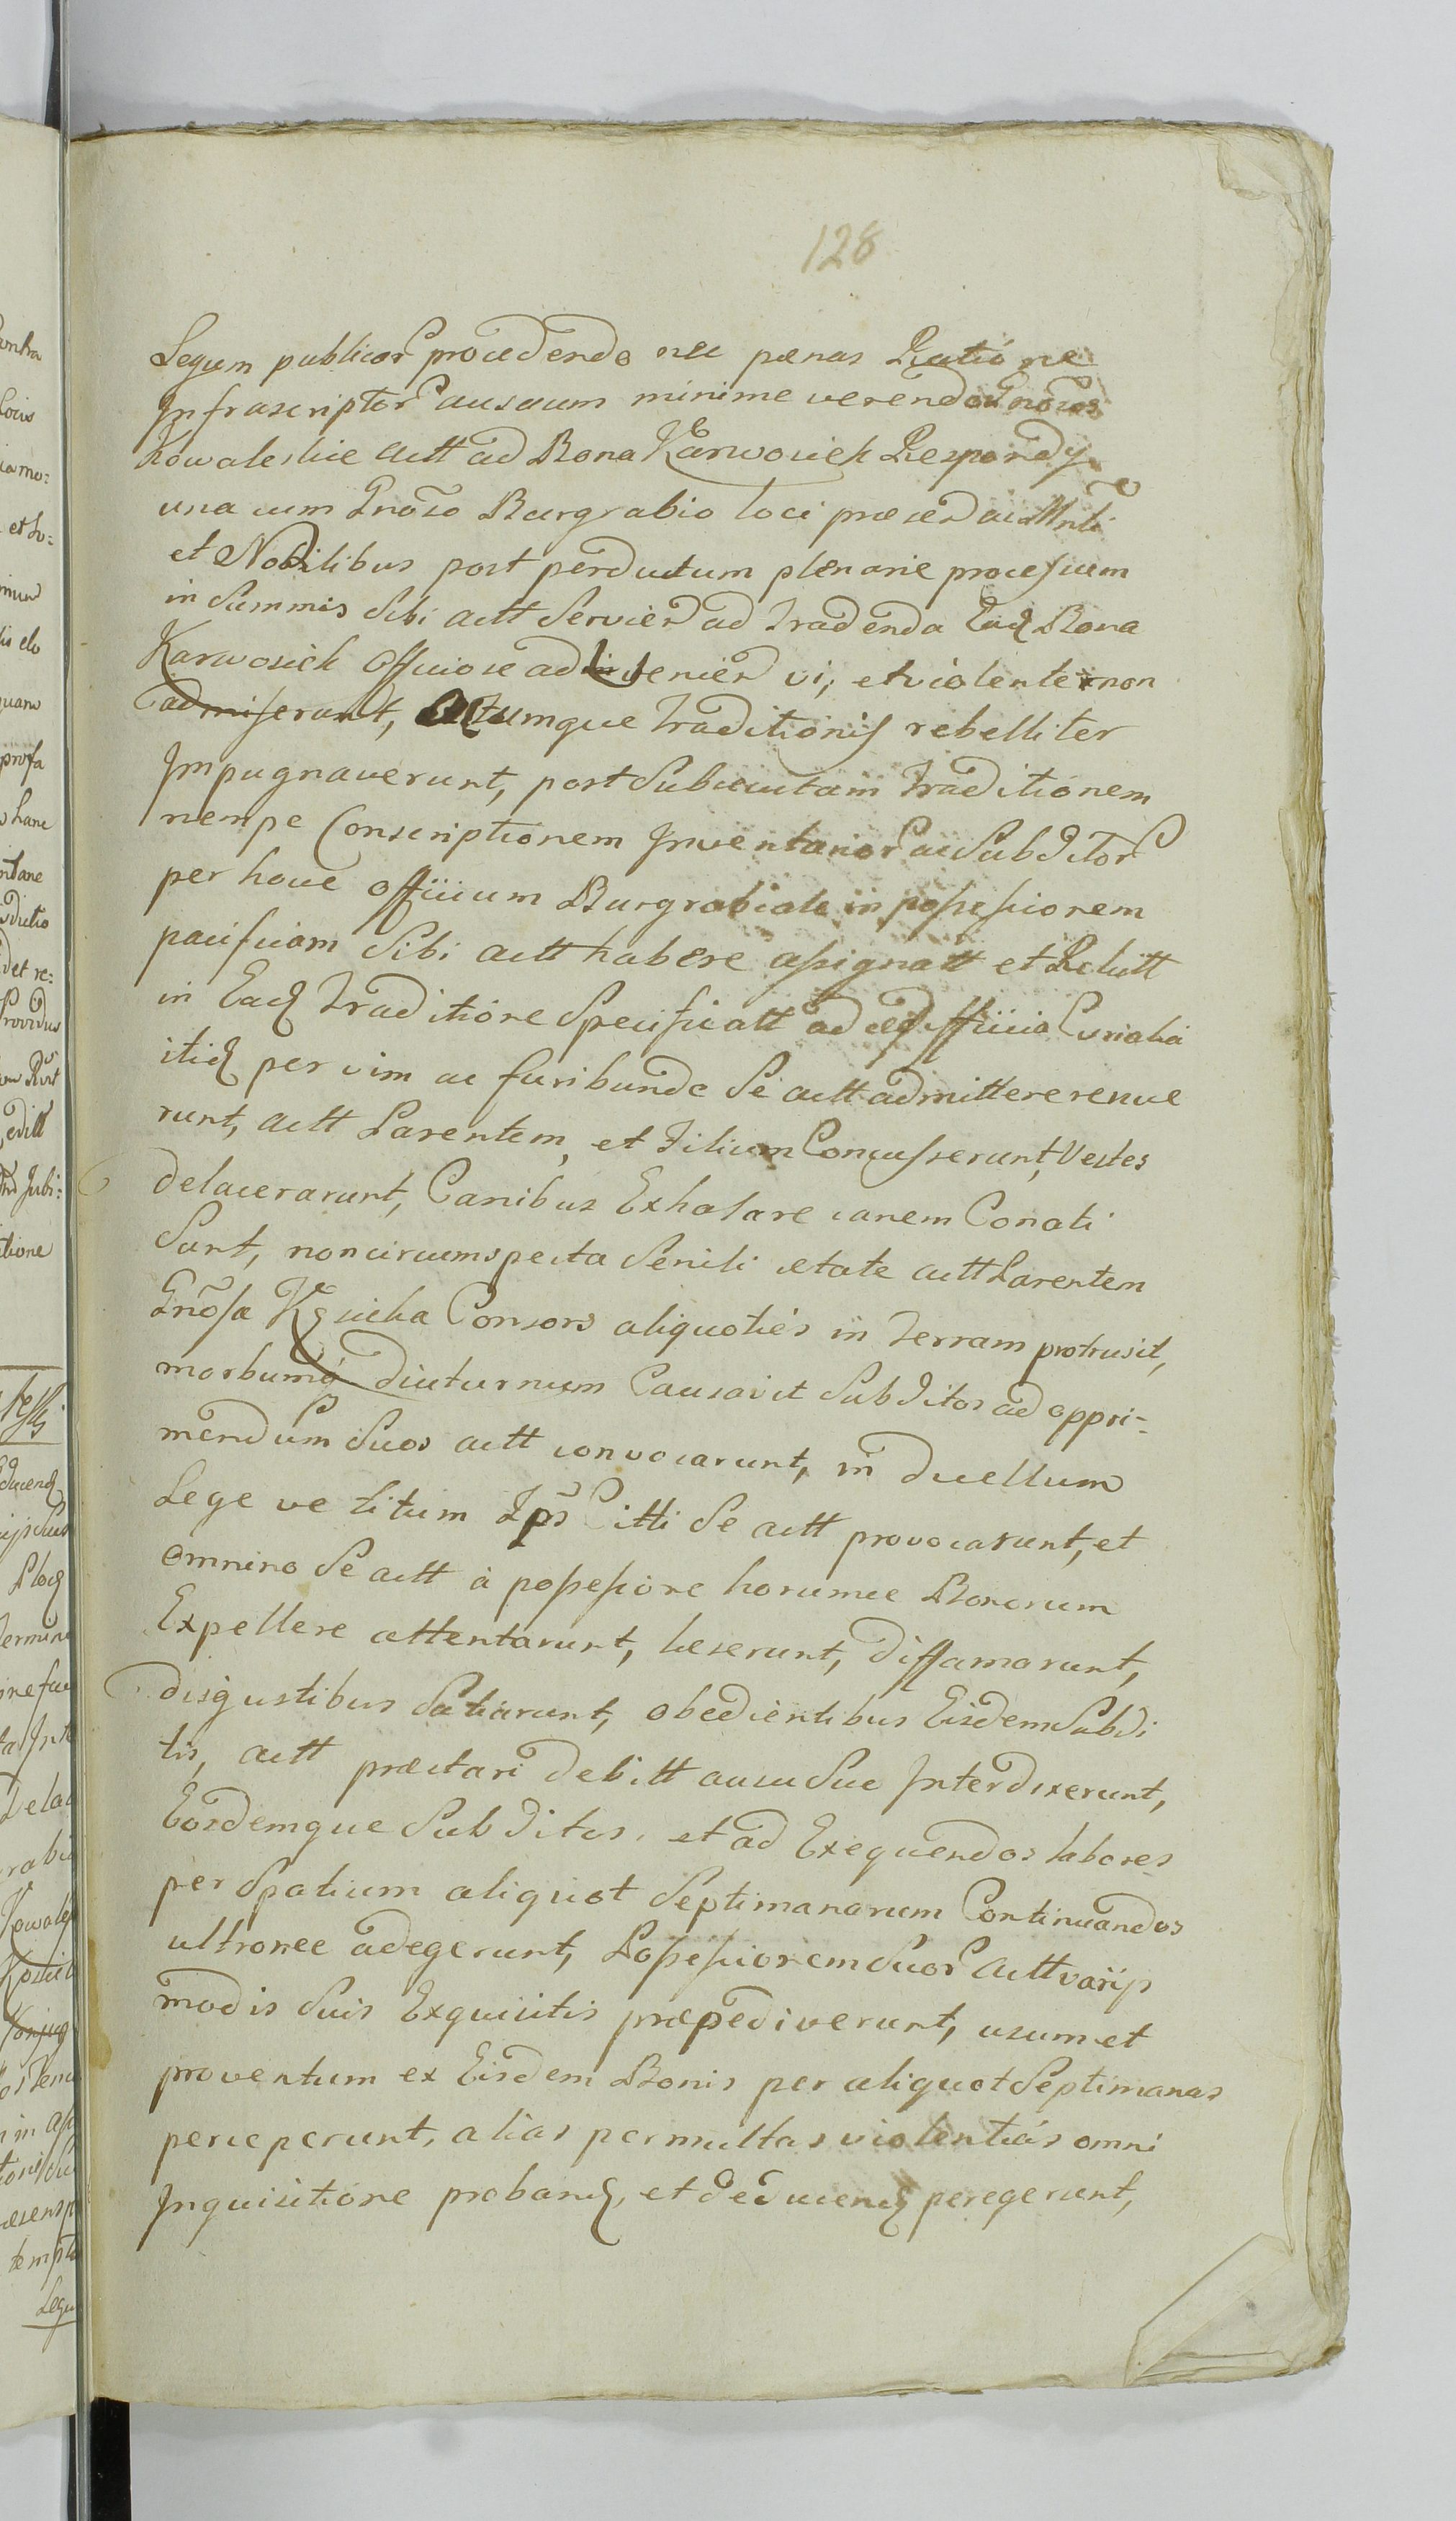 128
Legum publicor procedendo nec pænas Ratióne
Infrascriptor ausuum minime verendo Gnosos
Kowaleskie actt ad Bona Karwosiek Respondy
una cum Gnoso Burgrabio loci præsen ac Mrli
et Nobilibus post perductum plenarie processum
in Summis Sibi actt Servien ad tradenda Eaq Bona
Karwosiek Officiose ad venien vi, et violenter non
admiserant, Actumque traditionis rebelliter
Impugnaverunt, post Subsecutam traditionem
nempe Conscriptionem Inventarior ac Subditor
per hocce Officium Burgrabiale in possessionem
pacificam Sibi actt habere assignatt et Relictt
in Eaq traditione Specificatt ad ædifficia Curialia
itiq per vim ac furibunde Se actt admittere renue
runt, actt Parentem, et Filium Concusserunt, Vestes
delacerarunt, Canibus Exhalare canem Conati
Sunt, non circumspecta Senili ætate actt Parentem
Gnosa Kosicka Consors aliquoties in terram protrusit,
morbumq diuturnum Causavit Subditos ad oppri-
mendum Suos actt convocarunt, in duellum
Lege ve titum Ips Citti Se actt provocarunt, et
omnino Se actt à possessione horumce Bonorum
Expellere attentarunt, læserunt, diffamarunt,
disgustibus Satiarunt, obedientibus Eisdem Subdi
tis, actt præstari debitt ausu Suo Interdixerunt,
Eosdemque Subditos, et ad Exequendos labores
per Spatium aliquot Septimanarum Continuandos
ultronee adegerunt, Possessionem Suor Actt varijs
modis Suis Exquisitis præpediverunt, usum et
proventum ex Eisdem Bonis per aliquot Septimanas
perceperunt, alias permultas violentiás omni
Inquisitione proban, et deducen peregerunt,